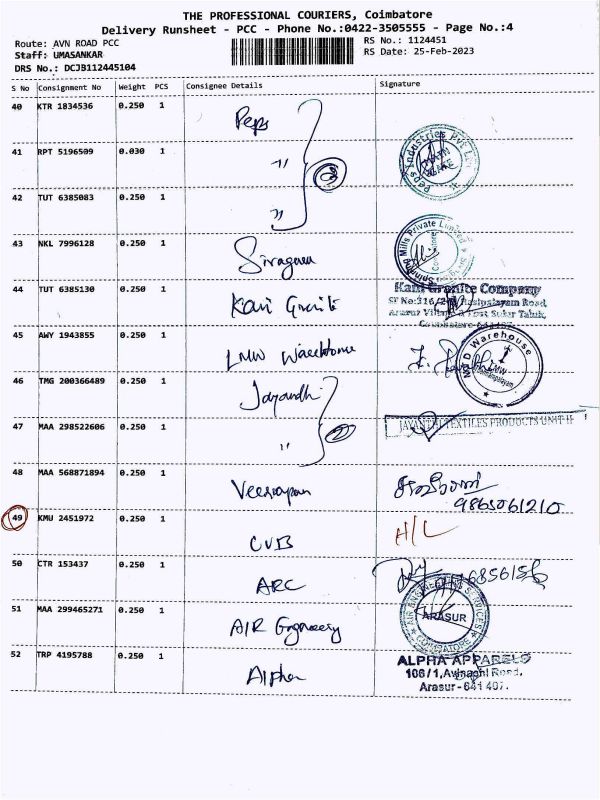 THE PROFESSIONAL COURIERS, Coimbatore
Delivery Runsheet - PCC - Phone No.:0422-3505555 - Page No.:4
Route: AVN ROAD PCC
Staff: UMASANKAR
DRS No.: DCJB112445104
RS No.: 1124451
RS Date: 25-Feb-2023
S No Consignment No Weight PCS Consignee Details Signature
40 KTR 1834536 0.250 1 Peps
41 RPT 5196509 0.030 1 "
Peps Industries Pvt Ltd
MAIN GATE
42 TUT 6385083 0.250 1 "
43 NKL 7996128 0.250 1
Mills Private Limited
44 TUT 6385130 0.250 1 Kani Granite
Kani Granite Company
Road,
Taluk,
45 AWY 1943855 0.250 1 LMW Warehouse
Warehouse
LMW
46 TMG 200366489 0.250 1 Jayandhi
47 MAA 298522606 0.250 1 "
JAYANTHI TEXTILES PRODUCTS UNIT-II
48 MAA 568871894 0.250 1
9865061210
49 KMU 2451972 0.250 1 CUB H/L
50 CTR 153437 0.250 1 ARC
51 MAA 299465271 0.250 1 AIR Engineery
AIR ENGINEERING SERVICES
ARASUR
COIMBATORE
52 TRP 4195788 0.250 1 Alpha
ALPHA APPARELS
106/1, Avinashi Road,
Arasur - 641 407.